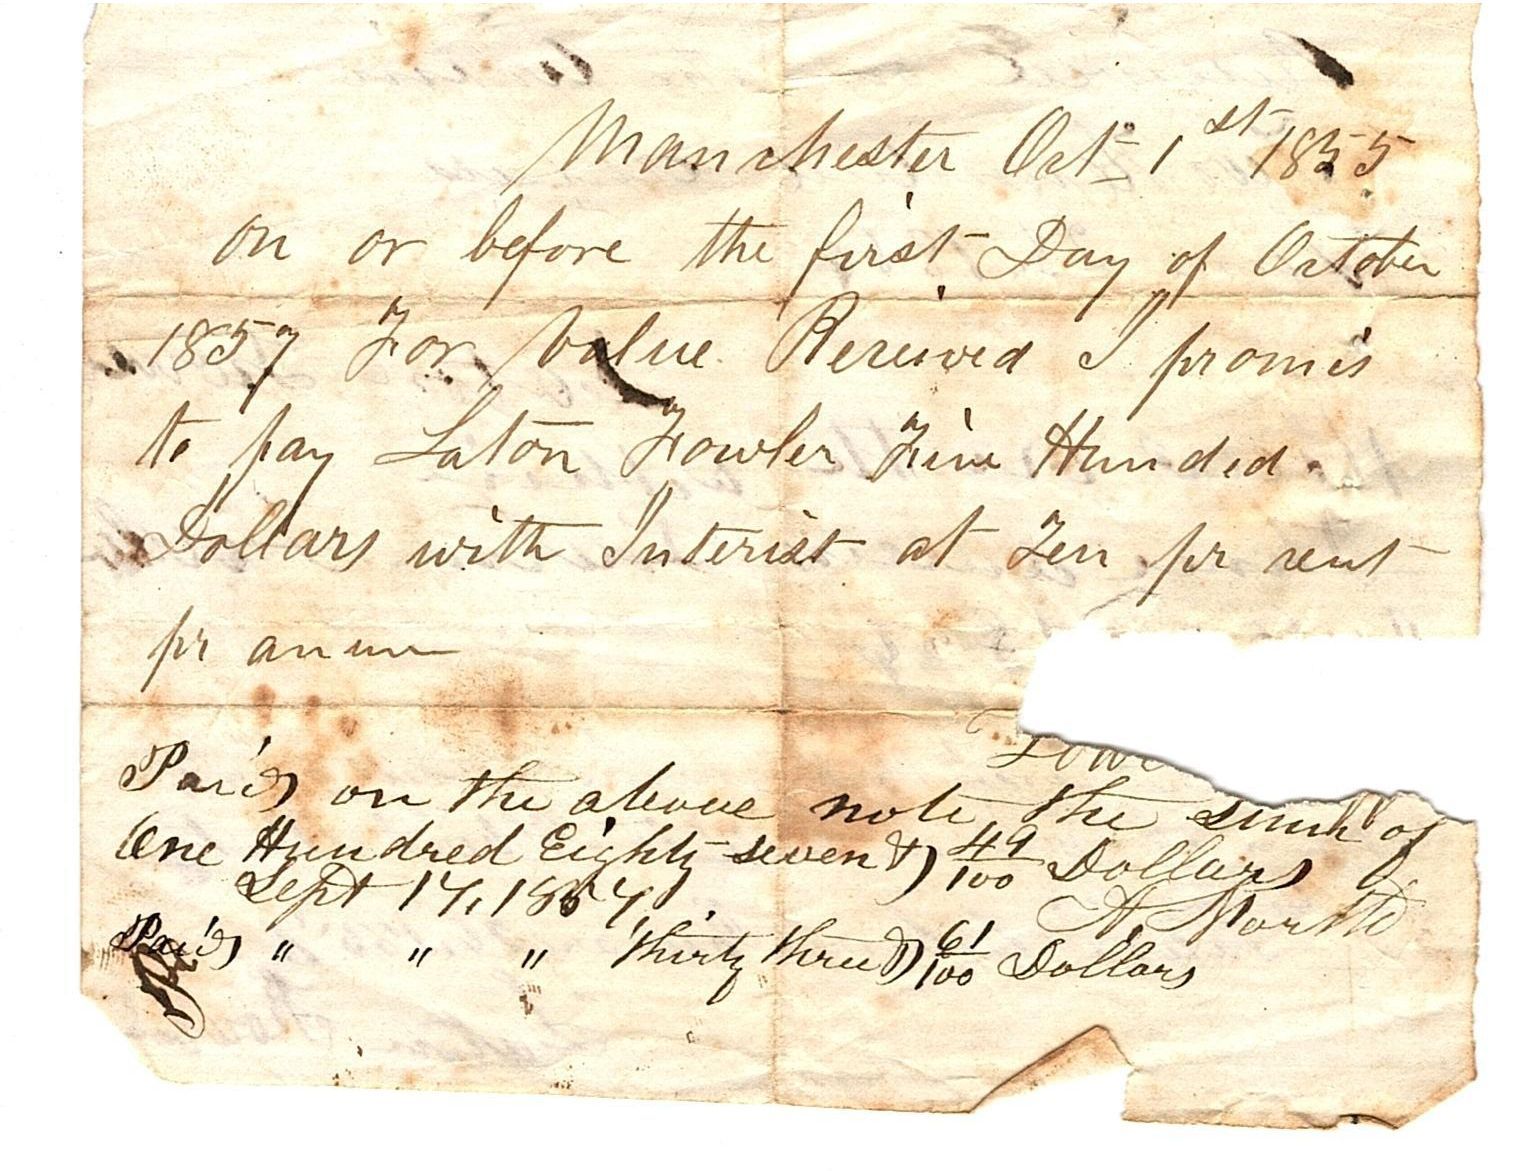 Manchester Oct 1st 1855
on or before the first Day of October
1857 For Value Received I promis
to pay Laton Fowler Five Hundred
Dollars with Interist at Ten pr cent
pr anum
Paid on the above note the sum of
One Hundred Eighty seven & 49/100 Dollars
Sept 17, 1857 A North
Paid " " " Thirty three & 61/100 Dollars